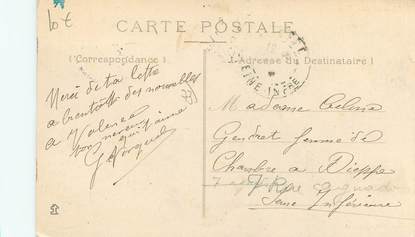 10 €
CARTE POSTALE
(Correspondance)
(Adresse du Destinataire)
Merci de ta lettre
a bientôt des nouvelles
a Valence
ton neveu
qui t'aime
Madame Celina
Gendret femme de
Chambre a Dieppe
7 Rue
Seine Inférieure